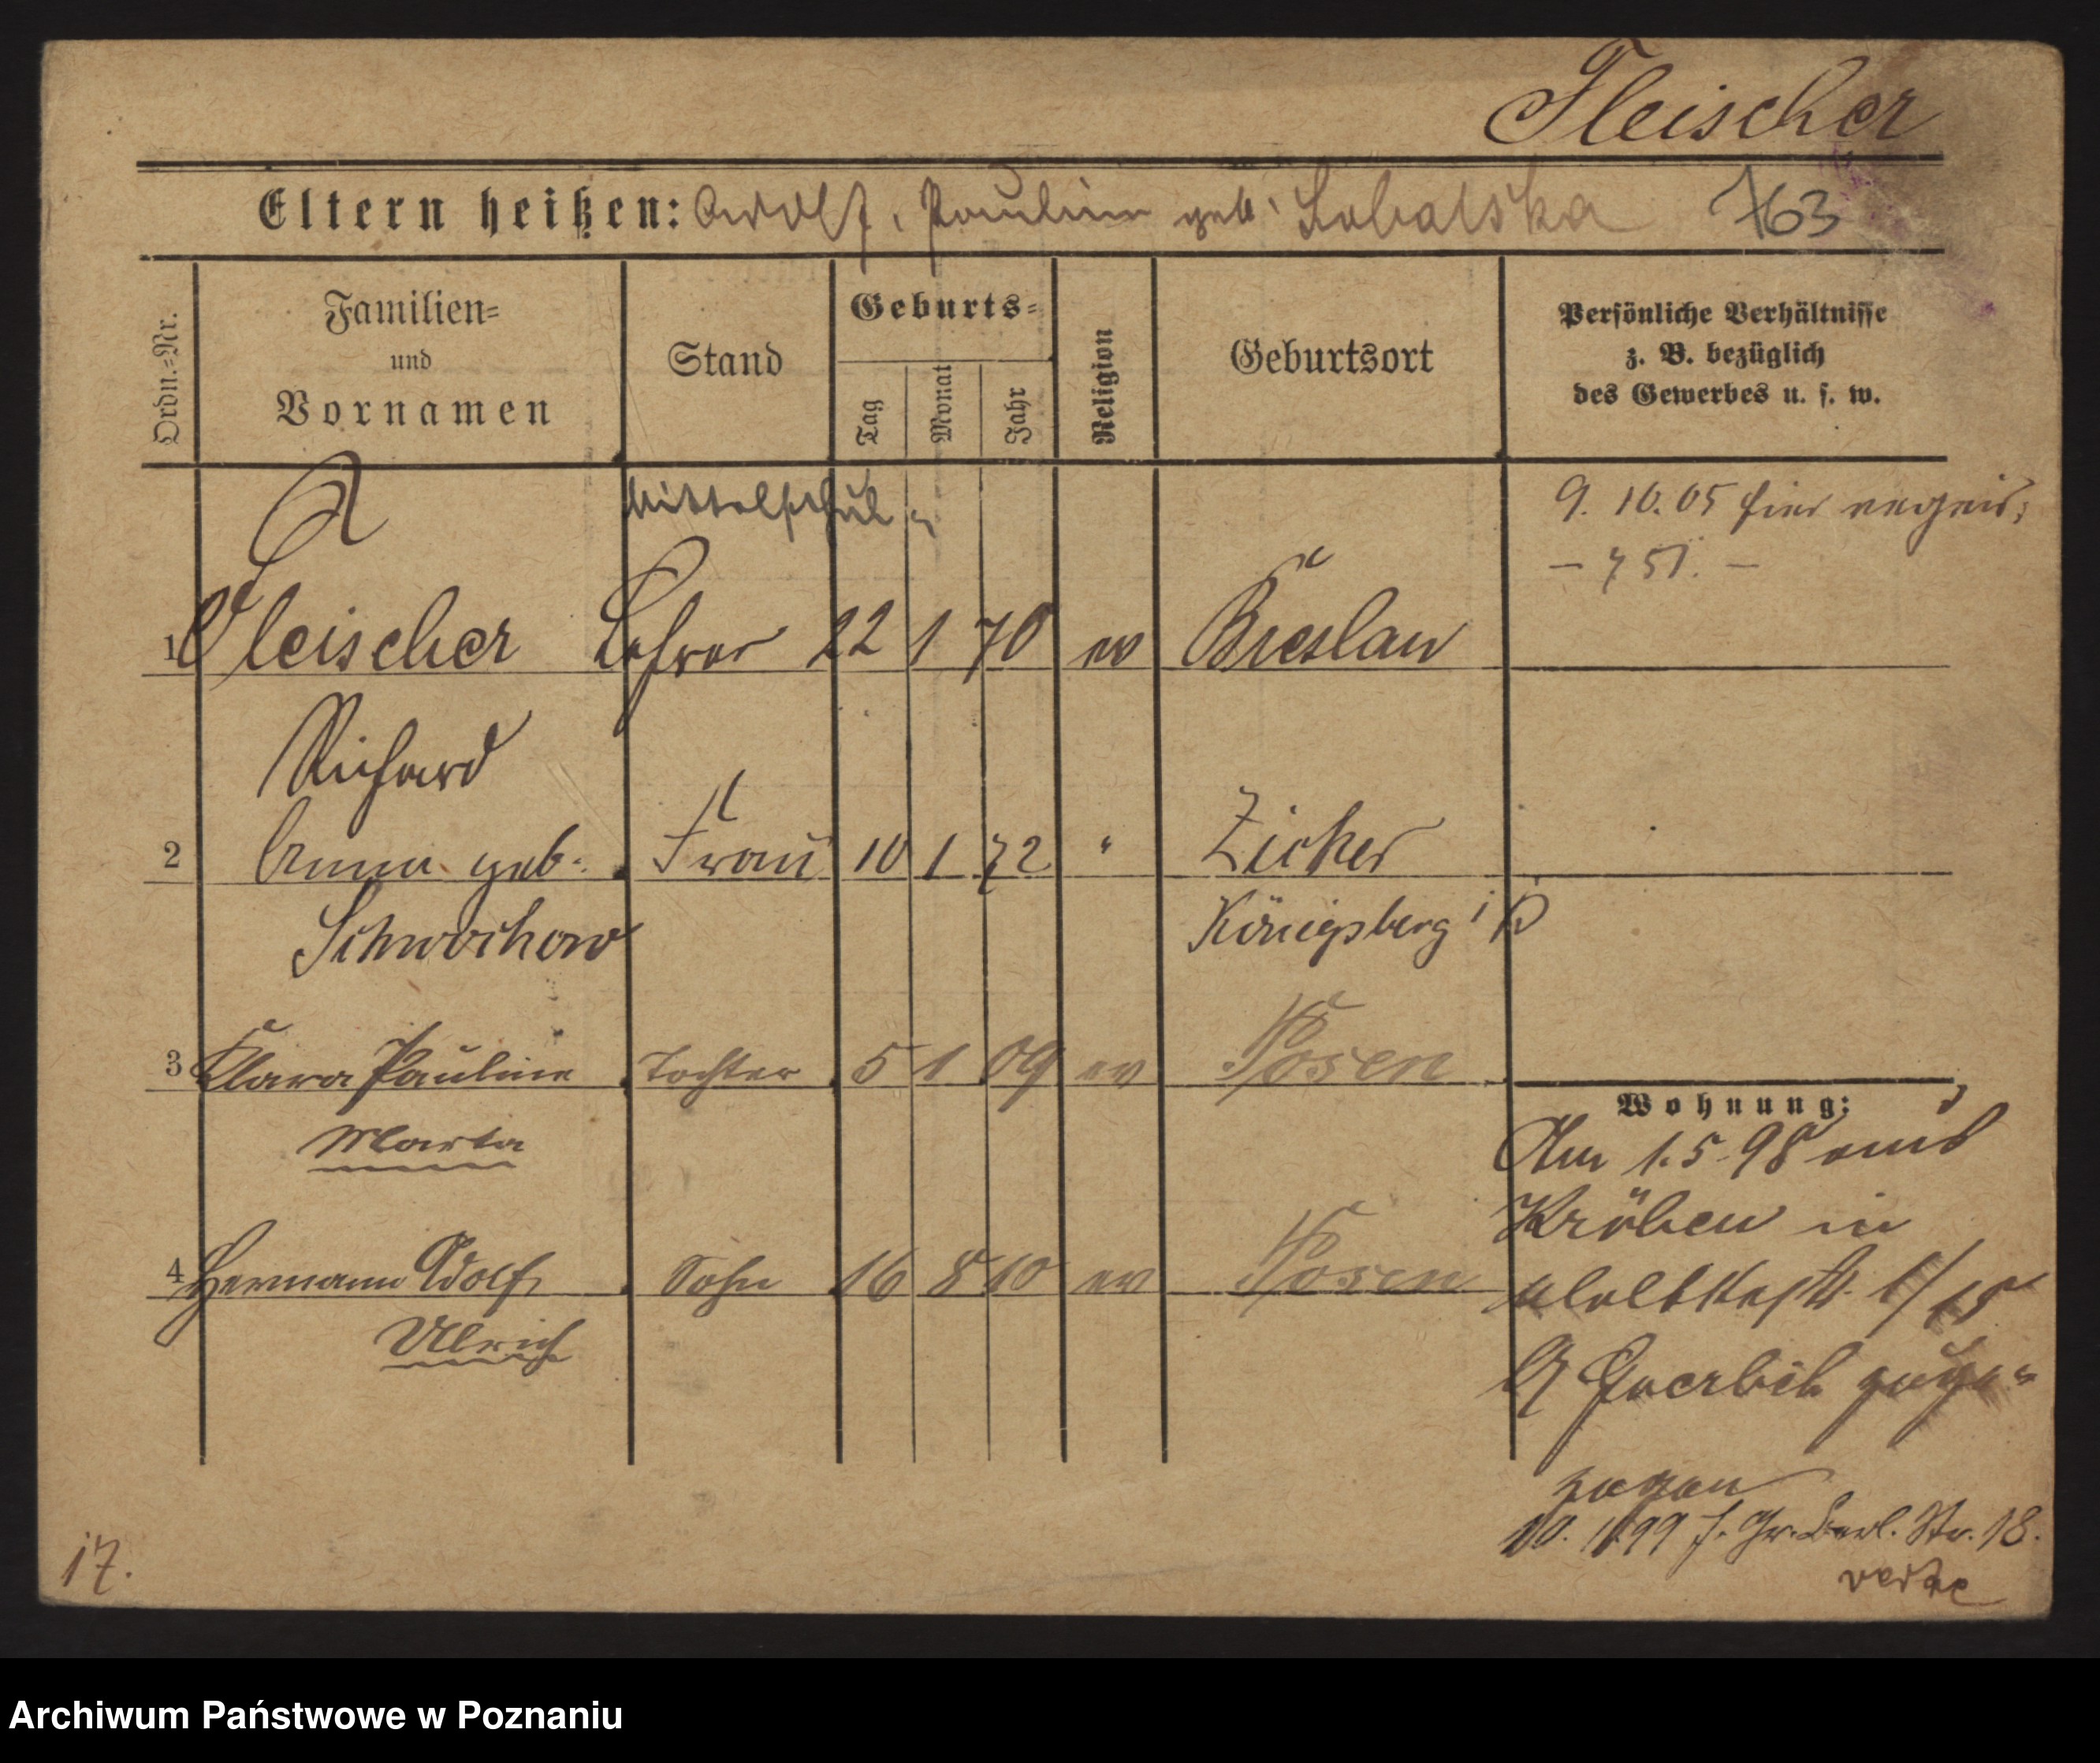 Fleischer
Eltern heißen: Adolf, Pauline geb. Lobalska 763
Ordn.=Nr.
Familien=
und
Vornamen
Stand
Geburts=
Tag
Monat
Jahr
Religion
Geburtsort
Persönliche Verhältnisse
z. B. bezüglich
des Gewerbes u. s. w.
Mittelschul-
9. 10. 05 hier
1 Fleischer Lehrer 22 1 70 ev Breslau
Richard
2 Anna geb. Frau 10 1 72 " Zicher
Schwochow Königsberg
3 Klara Pauline Tochter 5 1 09 ev Posen
Marta
4 Hermann Adolf Sohn 16 8 10 ev Posen
Ulrich
Wohnung:
Am 1. 5. 98 aus
Kröben in
zuge=
zogen
99 Gr. Berl. Str. 18.
verte
17.
Archiwum Państwowe w Poznaniu